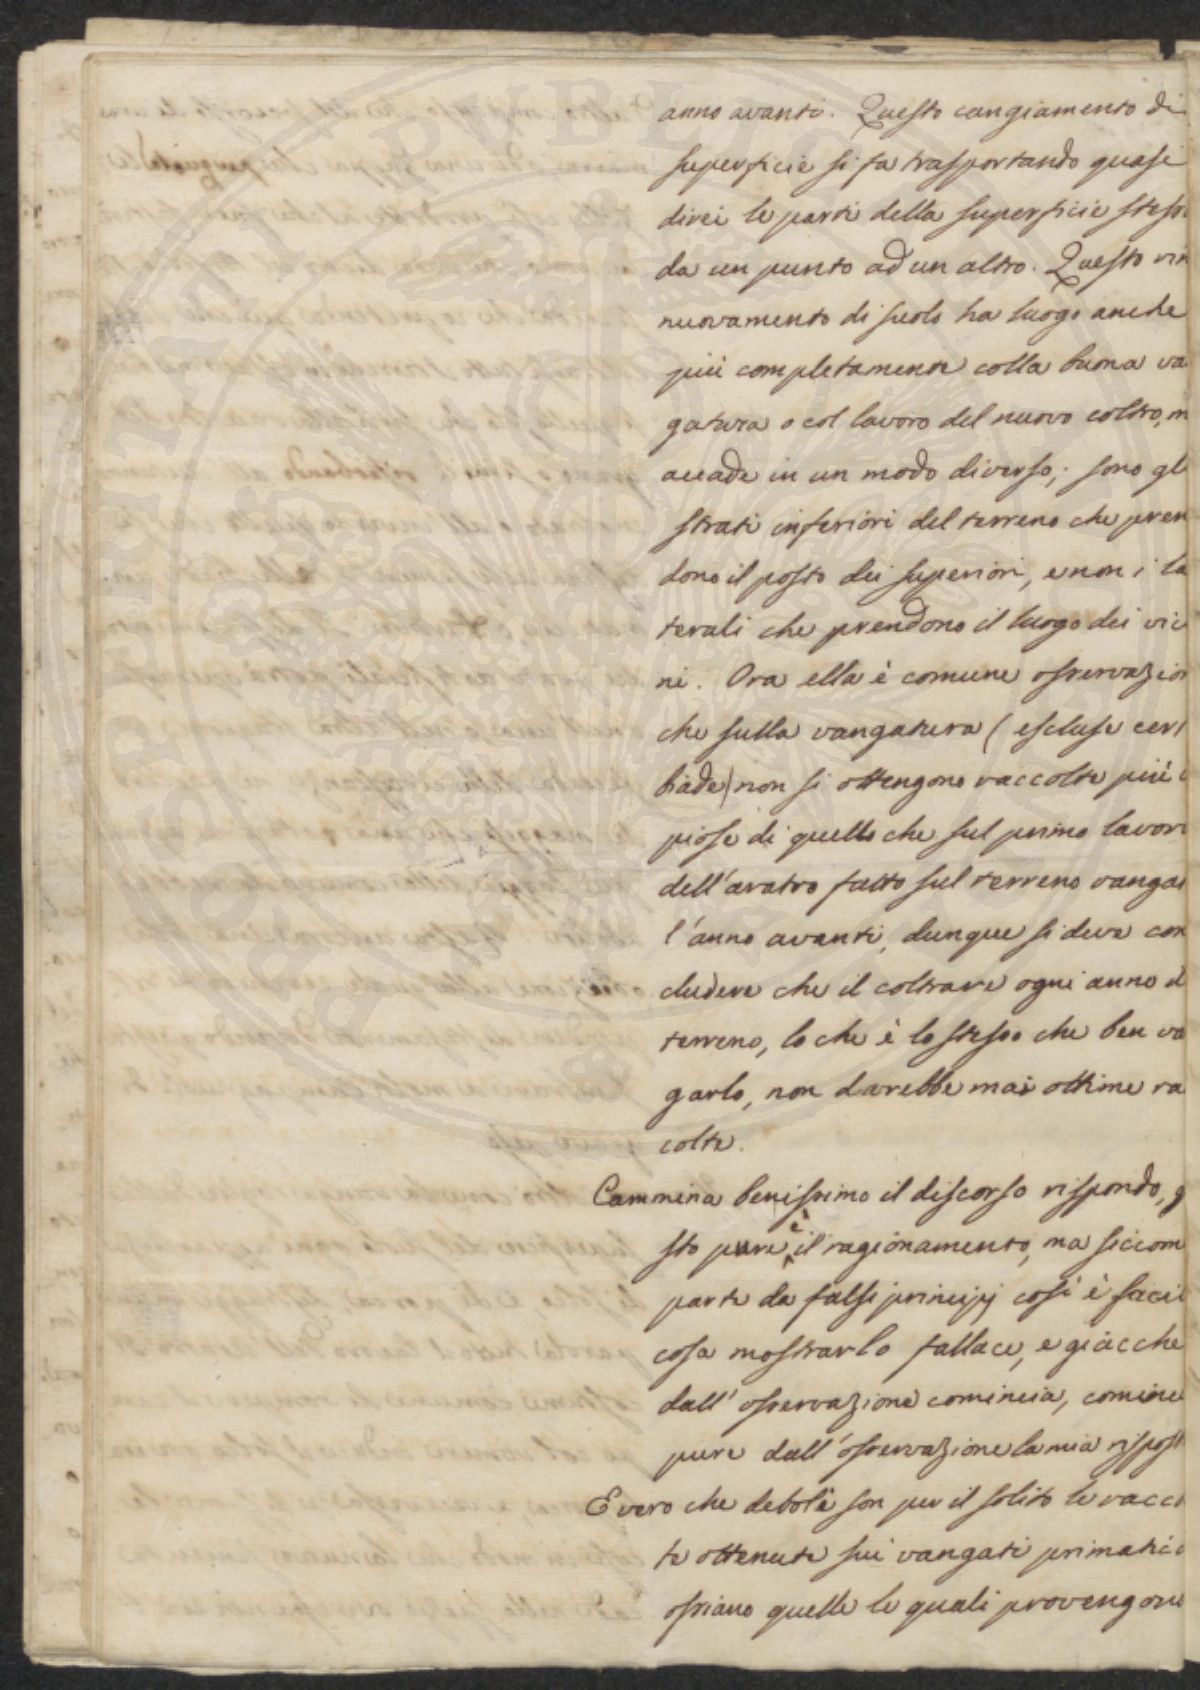 anno avanti. Questo cangiamento di
superficie si fa trasportando quasi
direi le parti della superficie stess
da un punto ad un altro. Questo rin
nuovamento di suolo ha luogo anche
più completamente colla buona va
gatura o col lavoro del nuovo coltro, m
accade in un modo diverso; sono gl
strati inferiori del terreno che pren
dono il posto dei superiori, e non i la
terali che prendono il luogo dei vic
ni. Ora ella è comune osservazion
che sulla vangatura (escluse cert
biade) non si ottengono raccolte più c
piose di quello che sul primo lavor
dell'aratro fatto sul terreno vangat
l'anno avanti, dunque si deve con
cludere che il coltrare ogni anno il
terreno, lo che è lo stesso che ben va
garlo, non darebbe mai ottime ra
colte.
Cammina benissimo il discorso rispondo, g
sto pure è il ragionamento, ma siccom
parte da falsi principj così è facil
cosa mostrarlo fallace, e giacche
dall'osservazione comincia, cominc
pure dall'osservazione la mia rispost
E vero che deboli son per il solito le racco
te ottenute sui vangati primaticc
ossiano quelle le quali provengono